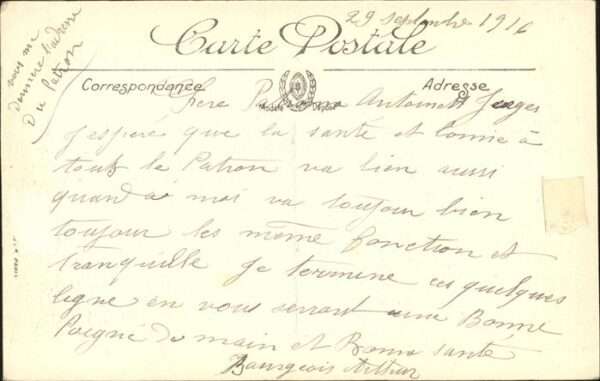 29 septembre 1916
vous me
donnerer l'adresse
du Patron
Carte Postale
Correspondance
Adresse
Modèle Déposé
Chère Antoinette
J'espère que la santé et bonne à
tout le Patron va bien aussi
quand à moi va toujour bien
toujour les même fonction et
tranquille Je termine ces quelques
ligne en vous serrant une Bonne
Poigné de main et Bonne santé
Bourgeois Arthur